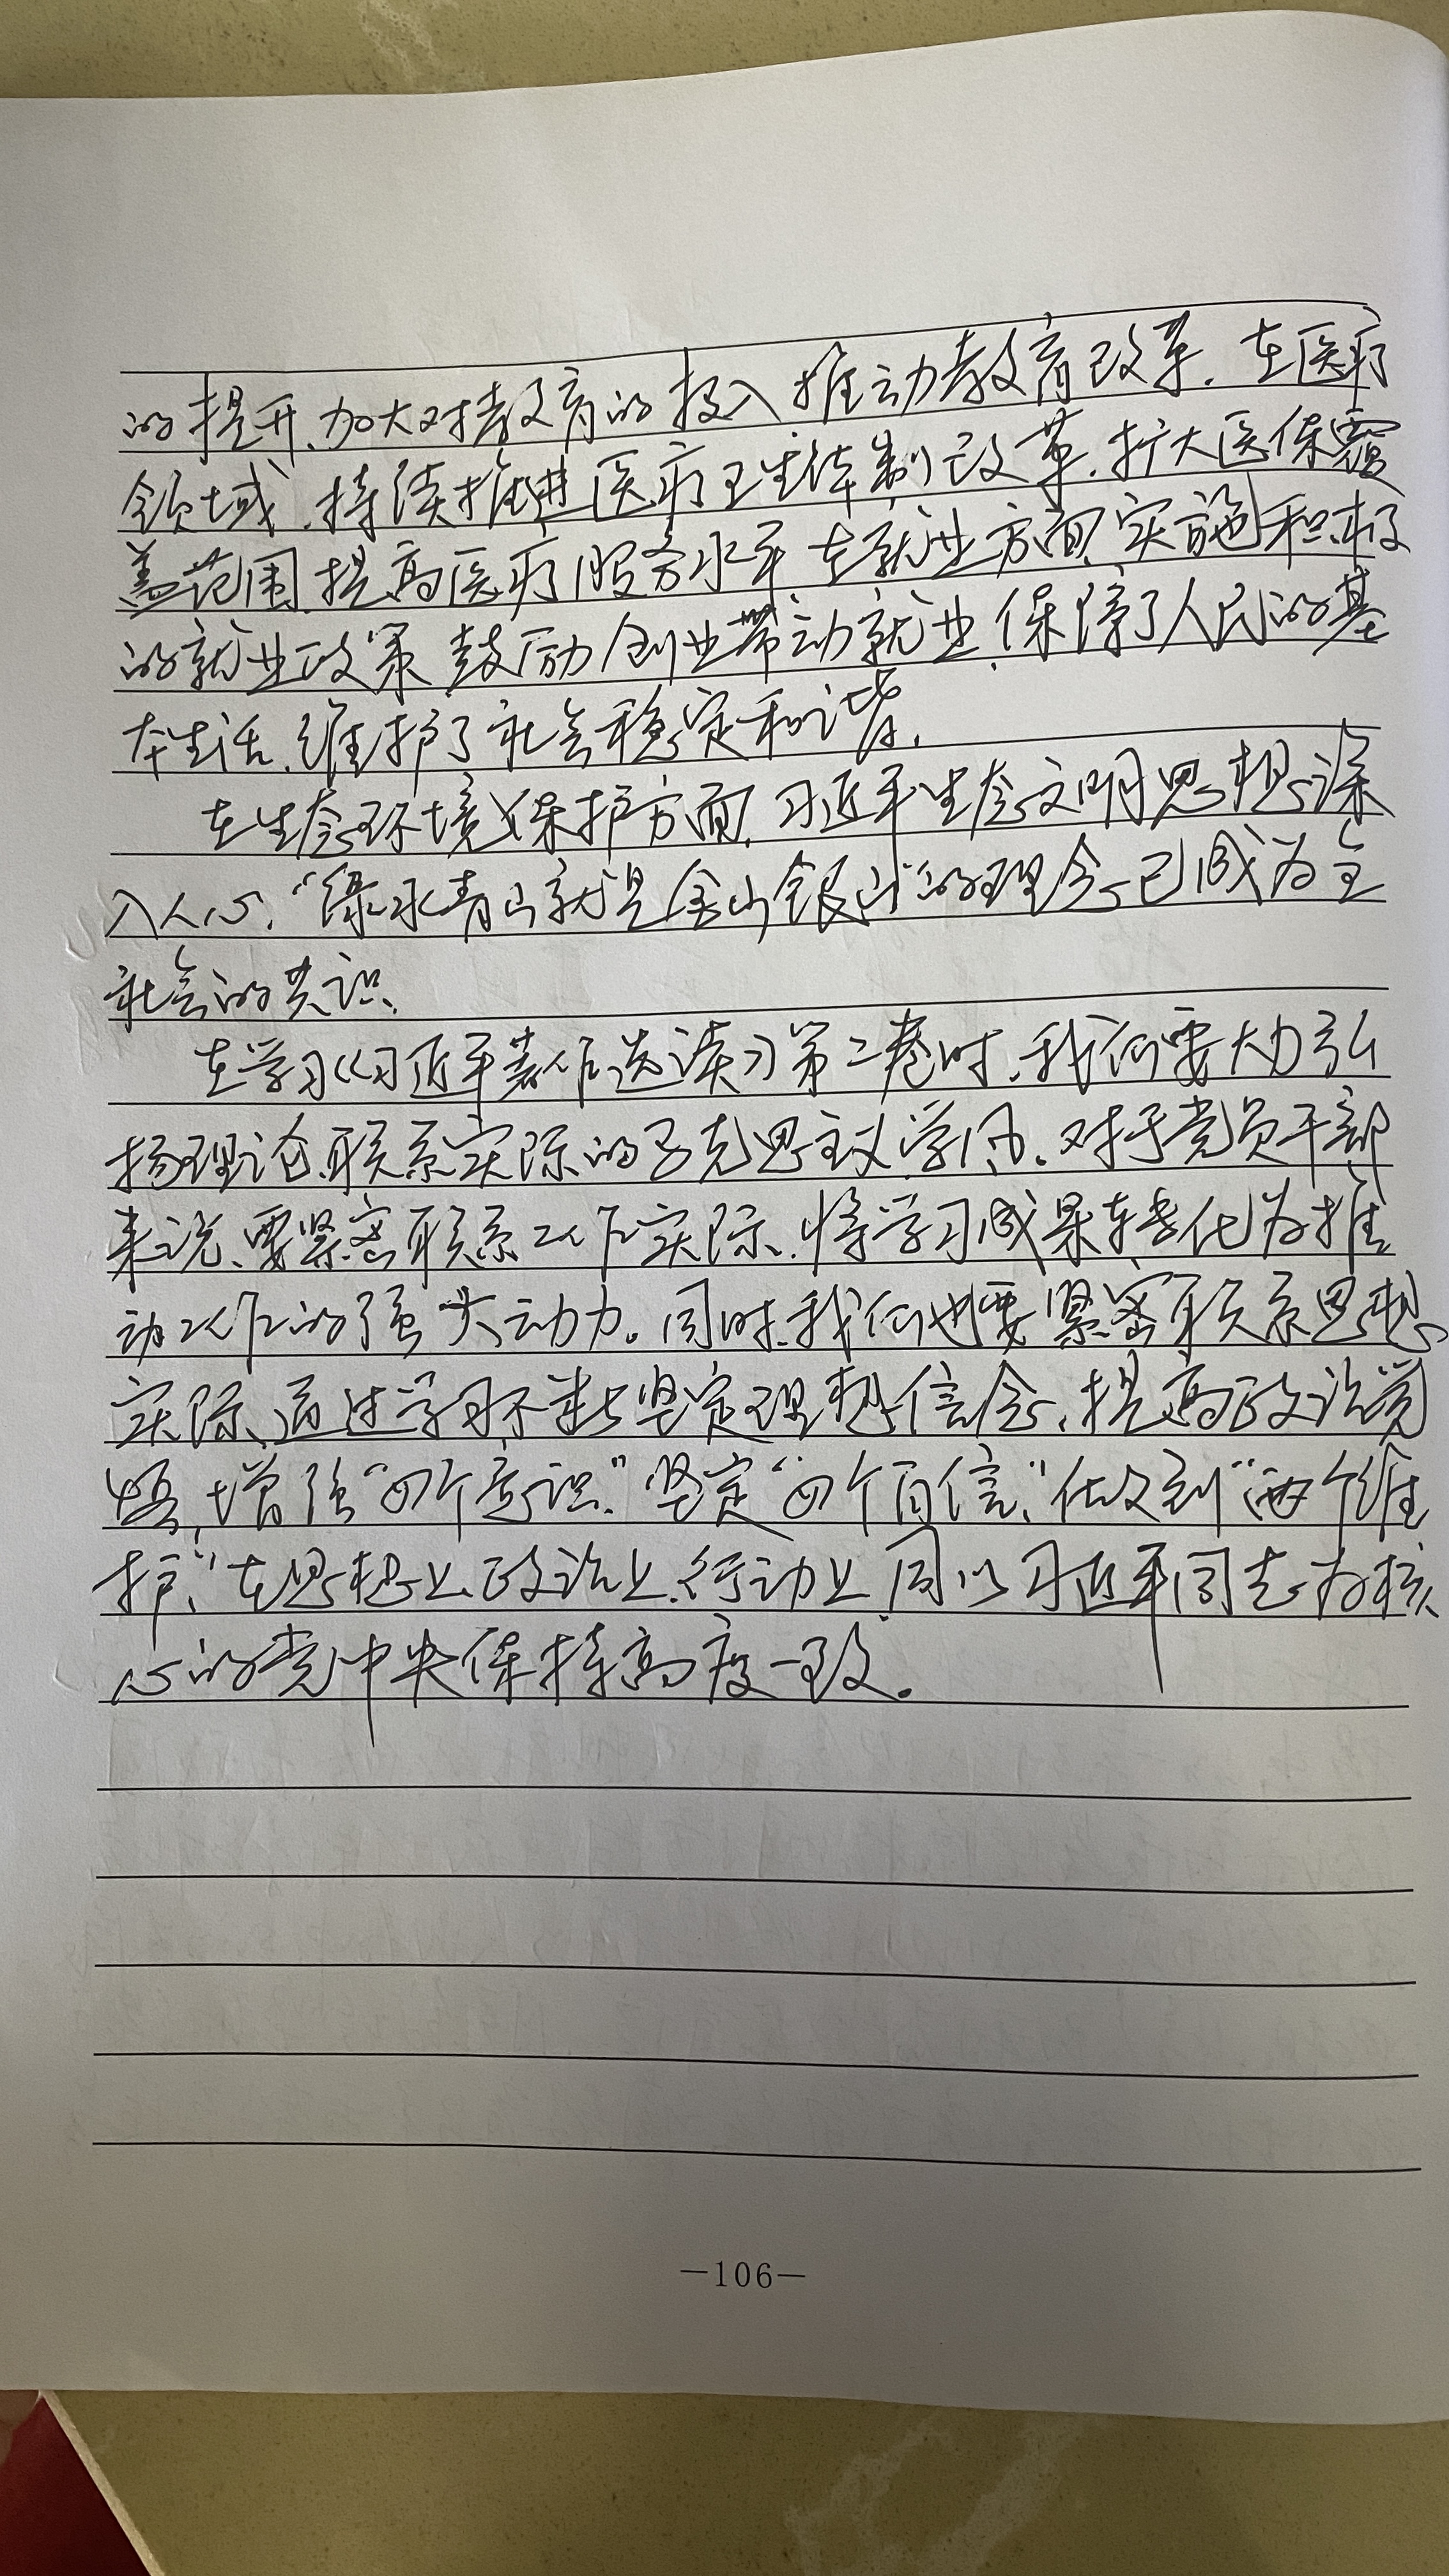 的提升,加大对教育的投入,推动教育改革。在医疗
领域,持续推进医疗卫生体制改革,扩大医保覆
盖范围,提高医疗服务水平。在就业方面,实施积极
的就业政策,鼓励创业带动就业,保障了人民的基
本生活,维护了社会稳定和谐。
在生态环境保护方面,习近平生态文明思想深
入人心,“绿水青山就是金山银山”的理念已成为全
社会的共识。
在学习《习近平著作选读》第二卷时,我们要大力弘
扬理论联系实际的马克思主义学风。对于党员干部
来说,要紧密联系工作实际,将学习成果转化为推
动工作的强大动力。同时,我们也要紧密联系思想
实际,通过学习不断坚定理想信念,提高政治觉
悟,增强“四个意识”坚定“四个自信”,做到“两个维
护”,在思想上、政治上、行动上同以习近平同志为核
心的党中央保持高度一致。
—106—